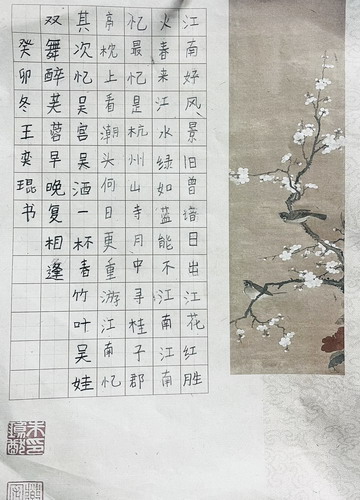 江南好风景旧曾谙日出江花红胜
火春来江水绿如蓝能不江南江南
忆最忆是杭州山寺月中寻桂子郡
亭枕上看潮头何日更重游江南忆
其次忆吴宫吴酒一杯春竹叶吴娃
双舞醉芙蓉早晚复相逢
癸卯冬王奕琨书